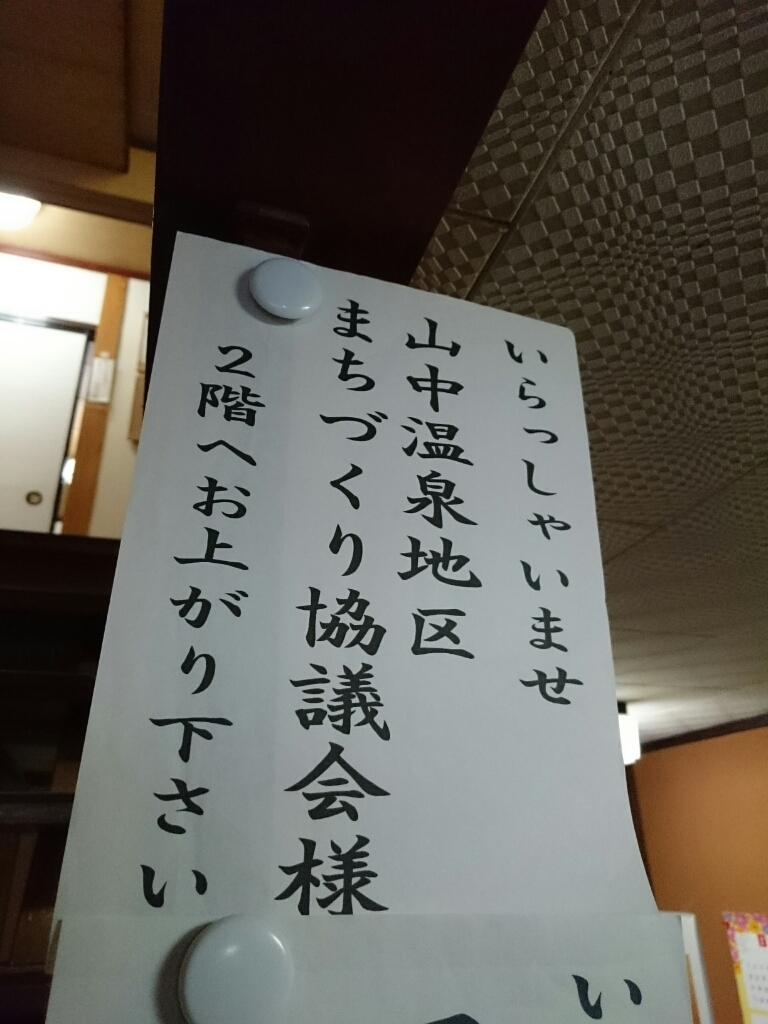 いらっしゃいませ
山中温泉地区
まちづくり協議会様
２階へお上がり下さい
い